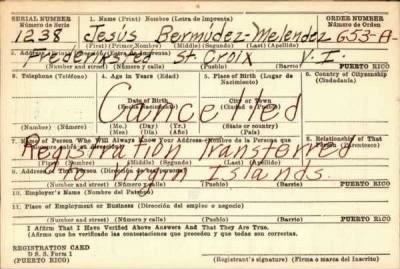 SERIAL NUMBER 1. Name (Print) Nombre (Letra de Imprenta) ORDER NUMBER
Número de Serie Número de Orden
1238 Jesús Bermúdez-Melendez 653-A-
(First) (Primer Nombre) (Middle) (Segundo) (Last) (Apellido)
2. Address (Print) Dirección (Letra de Imprenta)
Frederiksted St. Croix V. I.
PUERTO RICO
(Number and street) (Número y calle) (Pueblo) (Barrio)
3. Telephone (Teléfono) 4. Age in Years (Edad) 5. Place of Birth (Lugar de Nacimiento) 6. Country of Citizenship (Ciudadanía)
Date of Birth City or Town
(Fecha de Nacimiento) (Ciudad o Town)
Cancelled
(Number) (Número) (Mo.) (Day) (Yr.) (State or country)
(Mes) (Día) (Año) (Estado o país)
7. Name of Person Who Will Always Know Your Address (Nombre de la Persona que 8. Relationship of That
Registration Transferred
9. Address of That Person (Dirección de esa persona)
to Virgin Islands.
(Number and street) (Número y calle) (Pueblo) (Barrio) PUERTO RICO
10. Employer's Name (Nombre del Patrono)
11. Place of Employment or Business (Dirección del empleo o negocio)
(Number and street) (Número y calle) (Pueblo) (Barrio) PUERTO RICO
I Affirm That I Have Verified Above Answers And That They Are True.
(Afirmo que he verificado las contestaciones que preceden y que todas son correctas.
REGISTRATION CARD
D. S. S. Form 1
(PUERTO RICO) (Registrant's signature) (Firma o marca del Inscrito)